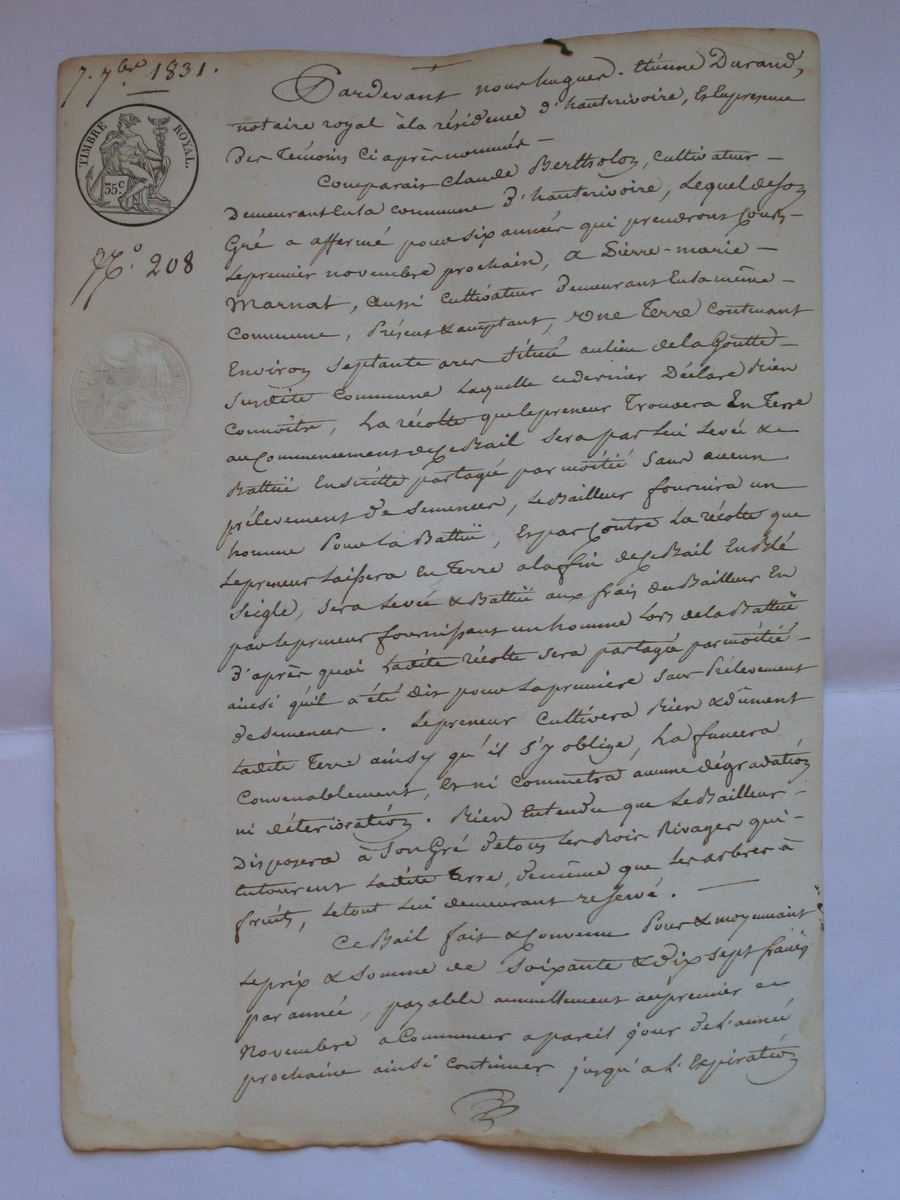 7. 7bre 1831.
TIMBRE ROYAL.
35c
No. 208
Pardevant nous hugues-Etienne Durand,
notaire royal à la résidence d'hauterivoire, En la presence
des Témoins Ci après nommés –
Comparait Claude Bertholon, cultivateur –
Demeurant En la commune d'hauterivoire, Lequel de son
Gré a affermé pour six années qui prendront Cours
Le premier novembre prochain, a Pierre-marie –
Marnat, aussi Cultivateur demeurant En la même –
Commune, Présent & acceptant, une Terre contenant
Environ Septante ares située au lieu de la Goutte –
Susdite Commune Laquelle ce dernier Déclare Bien
Connoître, La récolte que le preneur Trouvera En Terre
au Commencement de Ce Bail sera par lui Levée &
Battuë Ensuitte partagée par moitié sans aucun
prélevement de Semences, Le Bailleur fournira un
homme Pour La Battuë, Et par Contre La récolte que
Le preneur Laissera En Terre a la fin de Ce Bail En Blé
Seigle, sera Levée & Battuë aux frais du Bailleur En
par Le preneur fournissant un homme Lors de la Battuë
D'après quoi Ladite récolte sera partagée par moitié –
ainsi qu'il a été dit pour La première sans Prélevement
de Semences. Le preneur Cultivera Bien & dûment
Ladite Terre ainsy qu'il s'y oblige, La fumera
Convenablement, Et ni commettra aucune dégradation
ni déterioration. Bien Entendu que Le Bailleur –
Disposera à Son Gré de tous Les Bois Rivages qui –
Entourent Ladite Terre, de même que Les arbres à
fruits, Le tout Lui demeurant reservé. —
Ce Bail fait & Convenu Pour & moyennant
Le prix & Somme de Soixante & Dix sept francs
par année, payable annuellement au premier
Novembre à Commencer a pareil jour de L'année
prochaine ainsi continuer jusqu'a L'Expiration